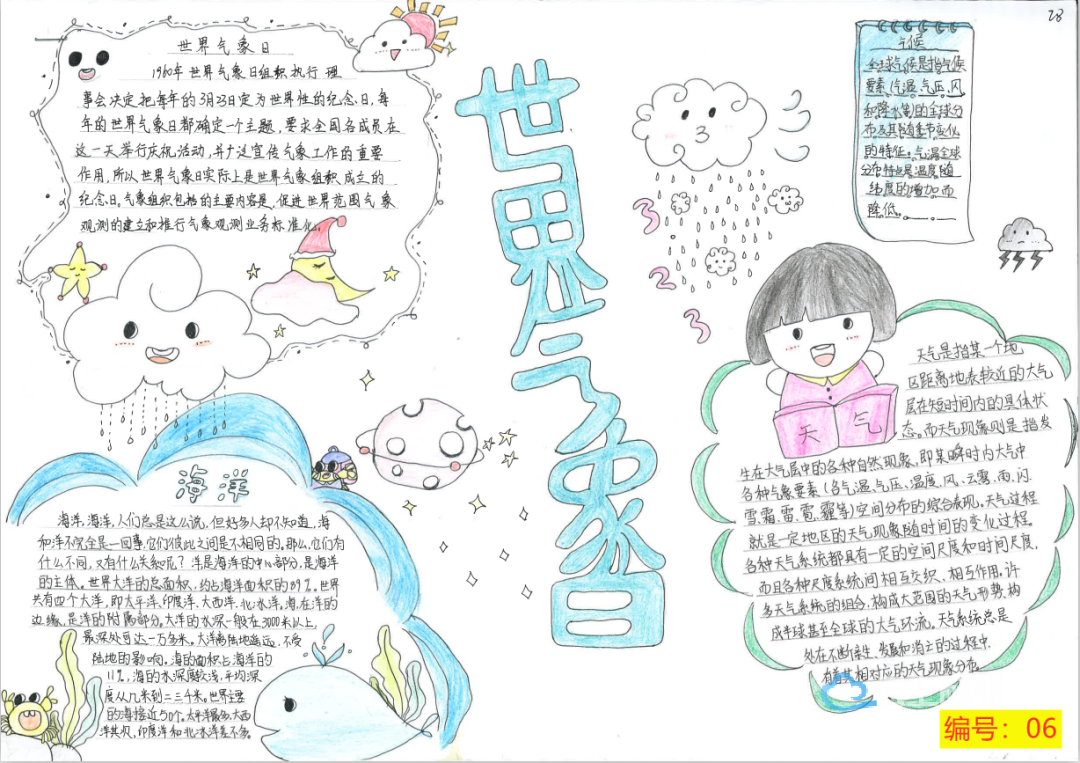 28
世界气象日
1960年 世界气象日组织 执行 理
事会决定把每年的3月23日定为世界性的纪念日,每
年的世界气象日都确定一个主题,要求全国各成员在
这一天举行庆祝活动,并广泛宣传气象工作的重要
作用,所以世界气象日实际上是世界气象组织成立的
纪念日,气象组织包括的主要内容是,促进世界范围气象
观测的建立和推行气象观测业务标准化。
世界气象日
3
3
2
3
气候
全球气候是指气候
要素(气温、气压、风
和降水等)的全球分
布及其随季节变化
的特征。气温全球
分布特点是温度随
纬度的增加而
降低。
天气
天气是指某一个地
区距离地表较近的大气
层在短时间内的具体状
态。而天气现象则是指发
生在大气层中的各种自然现象,即某瞬时内大气中
各种气象要素(各气温、气压、温度、风、云、雾、雨、闪、
雪、霜、雷、雹、霾等)空间分布的综合表现,天气过程
就是一定地区的天气现象随时间的变化过程。
各种天气系统都具有一定的空间尺度和时间尺度,
而且各种尺度系统间相互交织、相互作用。许
多天气系统的组合,构成大范围的天气形势,构
成半球甚至全球的大气环流。天气系统总是
处在不断新生、发展和消亡的过程中,
有着其相对应的天气现象分布。
海洋
海洋,海洋,人们总是这么说,但好多人却不知道,海
和洋不完全是一回事,它们彼此之间是不相同的。那么,它们有
什么不同,又有什么关系呢?洋是海洋的中心部分,是海洋
的主体。世界大洋的总面积、约占海洋面积的89%。世界
共有四个大洋,即太平洋、印度洋、大西洋、北冰洋。海,在洋的
边缘,是洋的附属部分。大洋的水深一般在3000米以上,
最深处可达一万多米。大洋离陆地遥远,不受
陆地的影响。海的面积占海洋的
11%,海的水深度较浅,平均深
度从几米到二三千米。世界主要
的海接近50个。太平洋最多,大西
洋其次,印度洋和北冰洋差不多。
编号:06